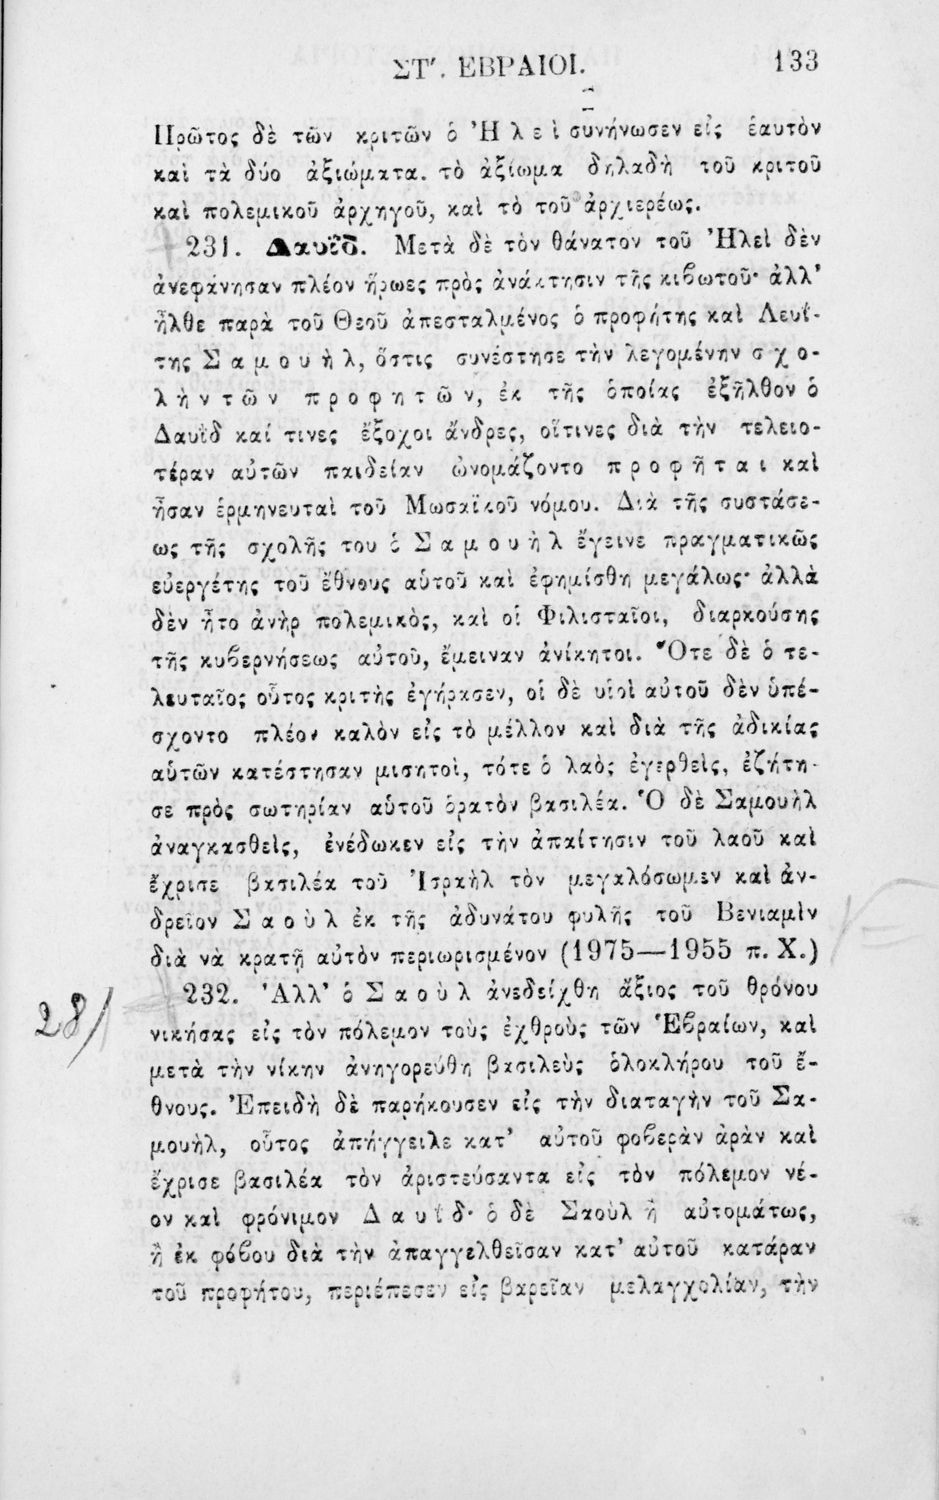 ΣΤ′. ΕΒΡΑΙΟΙ. 133
Πρῶτος δὲ τῶν κριτῶν ὁ Ἠλεὶ συνήνωσεν εἰς ἑαυτὸν
καὶ τὰ δύο ἀξιώματα. τὸ ἀξίωμα δηλαδὴ τοῦ κριτοῦ
καὶ πολεμικοῦ ἀρχηγοῦ, καὶ τὸ τοῦ ἀρχιερέως.
231. Δαυΐδ. Μετὰ δὲ τὸν θάνατον τοῦ Ἠλεὶ δὲν
ἀνεφάνησαν πλέον ἥρωες πρὸς ἀνάκτησιν τῆς κιβωτοῦ· ἀλλ’
ἦλθε παρὰ τοῦ Θεοῦ ἀπεσταλμένος ὁ προφήτης καὶ Λευΐ-
της Σαμουὴλ, ὅστις συνέστησε τὴν λεγομένην σχο-
λὴν τῶν προφητῶν, ἐκ τῆς ὁποίας ἐξῆλθον ὁ
Δαυῒδ καί τινες ἔξοχοι ἄνδρες, οἵτινες διὰ τὴν τελειο-
τέραν αὐτῶν παιδείαν ὠνομάζοντο προφῆται καὶ
ἦσαν ἑρμηνευταὶ τοῦ Μωσαϊκοῦ νόμου. Διὰ τῆς συστάσε-
ως τῆς σχολῆς του ὁ Σαμουὴλ ἔγεινε πραγματικῶς
εὐεργέτης τοῦ ἔθνους αὑτοῦ καὶ ἐφημίσθη μεγάλως· ἀλλὰ
δὲν ἦτο ἀνὴρ πολεμικὸς, καὶ οἱ Φιλισταῖοι, διαρκούσης
τῆς κυβερνήσεως αὐτοῦ, ἔμειναν ἀνίκητοι. Ὅτε δὲ ὁ τε-
λευταῖος οὗτος κριτὴς ἐγήρασεν, οἱ δὲ υἱοὶ αὐτοῦ δὲν ὑπέ-
σχοντο πλέον καλὸν εἰς τὸ μέλλον καὶ διὰ τῆς ἀδικίας
αὑτῶν κατέστησαν μισητοὶ, τότε ὁ λαὸς ἐγερθεὶς, ἐζήτη-
σε πρὸς σωτηρίαν αὑτοῦ ὁρατὸν βασιλέα. Ὁ δὲ Σαμουὴλ
ἀναγκασθεὶς, ἐνέδωκεν εἰς τὴν ἀπαίτησιν τοῦ λαοῦ καὶ
ἔχρισε βασιλέα τοῦ Ἰσραὴλ τὸν μεγαλόσωμεν καὶ ἀν-
δρεῖον Σαοὺλ ἐκ τῆς ἀδυνάτου φυλῆς τοῦ Βενιαμὶν
διὰ νὰ κρατῇ αὐτὸν περιωρισμένον (1975—1955 π. Χ.)
232. Ἀλλ’ ὁ Σαοὺλ ἀνεδείχθη ἄξιος τοῦ θρόνου
28/
νικήσας εἰς τὸν πόλεμον τοὺς ἐχθροὺς τῶν Ἑβραίων, καὶ
μετὰ τὴν νίκην ἀνηγορεύθη βασιλεὺς ὁλοκλήρου τοῦ ἔ-
θνους. Ἐπειδὴ δὲ παρήκουσεν εἰς τὴν διαταγὴν τοῦ Σα-
μουὴλ, οὗτος ἀπήγγειλε κατ’ αὐτοῦ φοβερὰν ἀρὰν καὶ
ἔχρισε βασιλέα τὸν ἀριστεύσαντα εἰς τὸν πόλεμον νέ-
ον καὶ φρόνιμον Δαυΐδ· ὁ δὲ Σαοὺλ ἢ αὐτομάτως,
ἢ ἐκ φόβου διὰ τὴν ἀπαγγελθεῖσαν κατ’ αὐτοῦ κατάραν
τοῦ προφήτου, περιέπεσεν εἰς βαρεῖαν μελαγχολίαν, τὴν